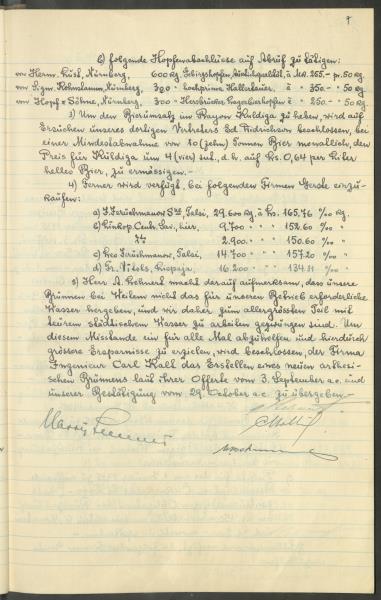 6) folgende Hopfenabschlüsse auf Abruf zu tätigen:
von Herm. Küst, Nürnberg, 600 kg. Gebirgshopfen, à Mk. 265.- pr. 50 kg
von Sigm. Kohnstamm, Nürnberg, 300 " hochprima Hallertauer, à " 350.- " 50 "
von Hopf & Söhne, Nürnberg, 300 " Hersbrucker à " 250.- " 50 "
3) Um den Bierumsatz im Rayon Kuldiga zu heben, wird auf
Ersuchen unseres dortigen Vertreters Ed. beschlossen, bei
einer Mindestabnahme von 10 (zehn) Tonnen Bier monatlich, den
Preis für Kuldiga um 4 (vier) sat., d. h. auf Ls. 0,64 per Liter
helles Bier, zu ermässigen.-
4) Ferner wird verfügt, bei folgenden Firmen Gerste einzu-
kaufen:
a) Talsi, 29.600 kg. à Ls. 165.76 ‰ kg.
b) Centr. Sav., hier, 9.700 " " " 152.60 ‰ "
2.900 " " " 150.60 ‰ "
c) Talsi, 14.700 " " " 157.20 ‰ "
d) Fr. Vitols, Liepaja, 16.200 " " " 134.11 ‰ "
5) Herr A. macht darauf aufmerksam, dass unsere
Brunnen bei Weitem nicht das für unseren Betrieb erforderliche
Wasser hergeben, und wir daher zum allergrössten Teil mit
teurem städtischem Wasser zu arbeiten gezwungen sind. Um
diesem Misstande ein für alle Mal abzuhelfen und hierdurch
grössere Ersparnisse zu erzielen, wird beschlossen, der Firma
Ingenieur Carl Kall das Erstellen eines neuen artesi-
schen Brunnens laut ihrer Offerte vom 3. September a.c. und
unserer Bestätigung vom 29. October a.c. zu übergeben.-
Harry